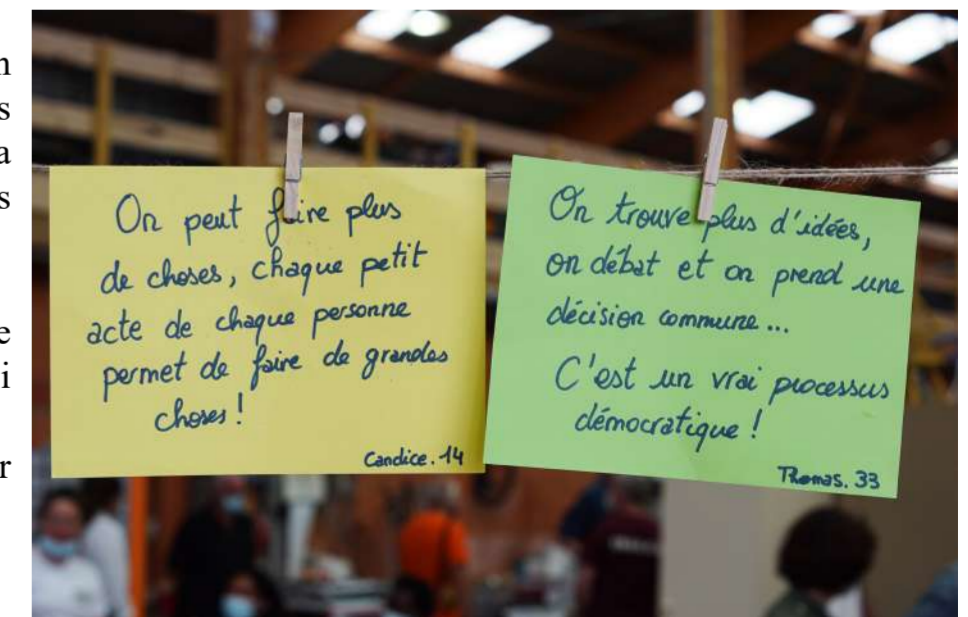 n
s
a
s
e
i
r
On peut faire plus
de choses, chaque petit
acte de chaque personne
permet de faire de grandes
choses !
Candice. 14
On trouve plus d'idées,
on débat et on prend une
décision commune...
C'est un vrai processus
démocratique !
Thomas. 33